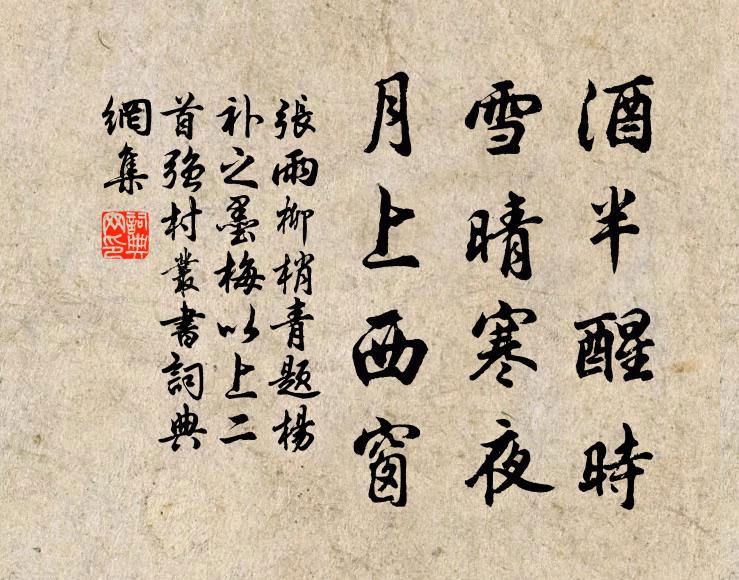 酒半醒時
雪晴寒夜
月上西窗
張雨柳梢青題楊
补之墨梅以上二
首強村叢書詞典
網集
詞典網印